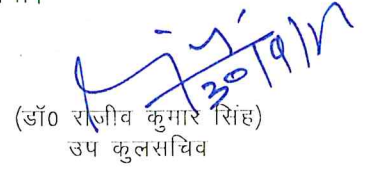 30/9/
(डॉ0 राजीव कुमार सिंह)
उप कुलसचिव